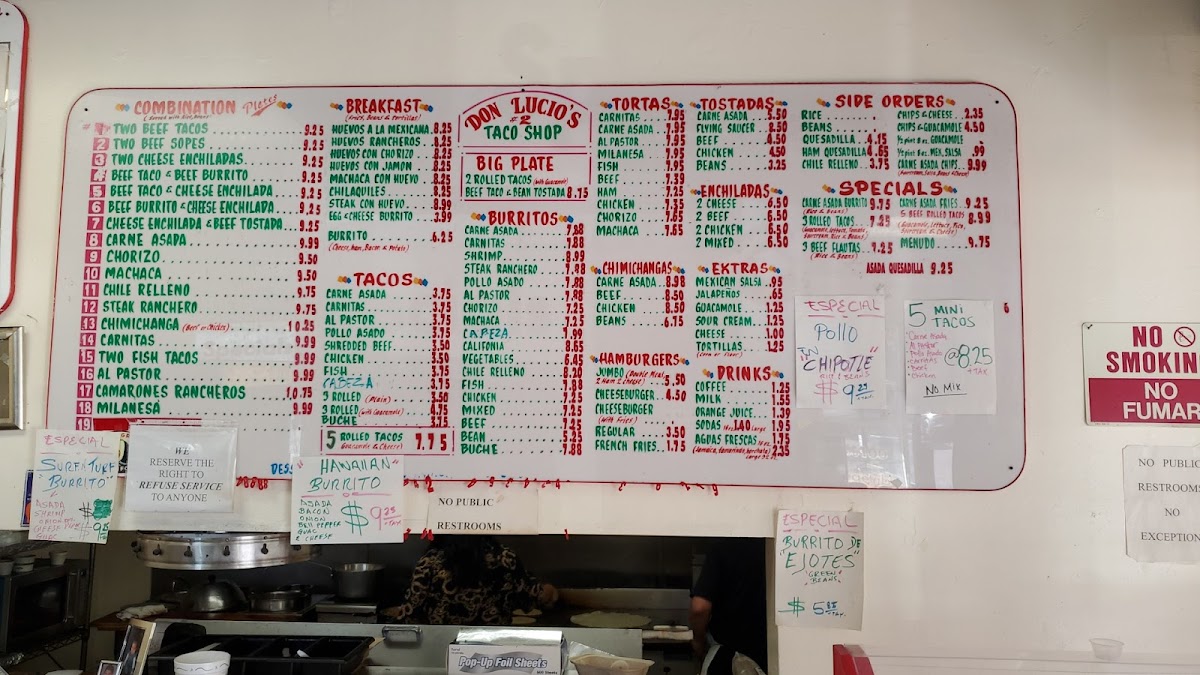 COMBINATION Plates
(Served with Rice, Beans)
1 TWO BEEF TACOS 9.25
2 TWO BEEF SOPES 9.25
3 TWO CHEESE ENCHILADAS 9.25
4 BEEF TACO & BEEF BURRITO 9.25
5 BEEF TACO & CHEESE ENCHILADA 9.25
6 BEEF BURRITO & CHEESE ENCHILADA 9.25
7 CHEESE ENCHILADA & BEEF TOSTADA 9.25
8 CARNE ASADA 9.99
9 CHORIZO 9.50
10 MACHACA 9.50
11 CHILE RELLENO 9.75
12 STEAK RANCHERO 9.75
13 CHIMICHANGA (Beef or Chicken) 10.25
14 CARNITAS 9.99
15 TWO FISH TACOS 9.99
16 AL PASTOR 9.99
17 CAMARONES RANCHEROS 10.75
18 MILANESÁ 9.99
19
BREAKFAST
(Rice, Beans & Tortillas)
HUEVOS A LA MEXICANA 8.25
HUEVOS RANCHEROS 8.25
HUEVOS CON CHORIZO 8.25
HUEVOS CON JAMON 8.25
MACHACA CON HUEVO 8.25
CHILAQUILES 8.25
STEAK CON HUEVO 8.99
EGG & CHEESE BURRITO 3.99
BURRITO 6.25
(Cheese, Ham, Bacon & Potato)
TACOS
CARNE ASADA 3.75
CARNITAS 3.75
AL PASTOR 3.75
POLLO ASADO 3.75
SHREDDED BEEF 3.50
CHICKEN 3.50
FISH 3.75
CABEZA 3.75
3 ROLLED (Plain) 3.50
3 ROLLED (with Guacamole) 4.75
BUCHE 3.75
5 ROLLED TACOS 7.75
Guacamole & Cheese
DON LUCIO'S
#2
TACO SHOP
BIG PLATE
2 ROLLED TACOS (with Guacamole)
BEEF TACO & BEAN TOSTADA 8.75
BURRITOS
CARNE ASADA 7.88
CARNITAS 7.88
SHRIMP 8.99
STEAK RANCHERO 7.88
POLLO ASADO 7.88
AL PASTOR 7.88
CHORIZO 7.25
MACHACA 7.25
CABEZA 7.99
CALIFONIA 8.65
VEGETABLES 6.45
CHILE RELLENO 8.20
FISH 7.88
CHICKEN 7.25
MIXED 7.25
BEEF 7.25
BEAN 5.25
BUCHE 7.88
TORTAS
CARNITAS 7.95
CARNE ASADA 7.95
AL PASTOR 7.95
MILANESA 7.95
FISH 7.95
BEEF 7.39
HAM 7.25
CHICKEN 7.35
CHORIZO 7.65
MACHACA 7.65
CHIMICHANGAS
CARNE ASADA 8.98
BEEF 8.50
CHICKEN 8.50
BEANS 6.75
HAMBURGERS
JUMBO (Double Meat, 2 Ham & cheese) 5.50
CHEESEBURGER 4.50
CHEESEBURGER
(with Fries)
REGULAR 3.50
FRENCH FRIES 1.75
TOSTADAS
CARNE ASADA 5.50
FLYING SAUCER 8.50
BEEF 4.50
CHICKEN 4.50
BEANS 3.25
ENCHILADAS
2 CHEESE 6.50
2 BEEF 6.50
2 CHICKEN 6.50
2 MIXED 6.50
EXTRAS
MEXICAN SALSA .95
JALAPEÑOS .65
GUACAMOLE 1.25
SOUR CREAM 1.25
CHEESE 1.00
TORTILLAS 1.25
(Corn or Flour)
DRINKS
COFFEE 1.25
MILK 1.55
ORANGE JUICE 1.39
SODAS 1.40 Large 1.95
AGUAS FRESCAS 1.75
(Jamaica, Tamarindo, horchata) Large 2.35
SIDE ORDERS
RICE
BEANS
QUESADILLA 4.15
HAM QUESADILLA 4.65
CHILE RELLENO 3.75
CHIPS & CHEESE 2.35
CHIPS & GUACAMOLE 4.50
½ pint 8 oz. GUACAMOLE
½ pint 8 oz. MEX. SALSA .99
CARNE ASADA CHIPS 9.99
SPECIALS
CARNE ASADA BURRITO 9.75
(Rice & Beans)
3 ROLLED TACOS 7.25
(Guacamole, Lettuce, Tomato, Sourcream, Rice & Beans)
3 BEEF FLAUTAS 9.25
(Rice & Beans)
CARNE ASADA FRIES 9.25
5 BEEF ROLLED TACOS 8.99
(Guacamole, Lettuce, Rice, Sourcream & Cheese)
MENUDO 9.75
ASADA QUESADILLA 9.25
ESPECIAL
POllO
IN
"CHIPOTLE"
RICE & BEANS
$ 9.25
5 MINI
TACOS
Carne Asada
Al Pastor
Pollo Asado
Carnitas
Beef
Chicken
@ 8.25
+TAX
NO MIX
NO
SMOKING
NO
FUMAR
NO PUBLIC
RESTROOMS
NO
EXCEPTIONS
ESPECIAL
SURF N TURF
"BURRITO"
ASADA
SHRIMP
ONION
CHEESE
GUAC
WE
RESERVE THE
RIGHT TO
REFUSE SERVICE
TO ANYONE
DESS
"HAWAIIAN"
BURRITO
ASADA
BACON
ONION
BELL PEPPER
GUAC
& CHEESE
$ 9.25
+TAX
NO PUBLIC
RESTROOMS
ESPECIAL
BURRITO DE
"EJOTES"
"GREEN
BEANS"
$ 5.85
+TAX
Pop-Up Foil Sheets